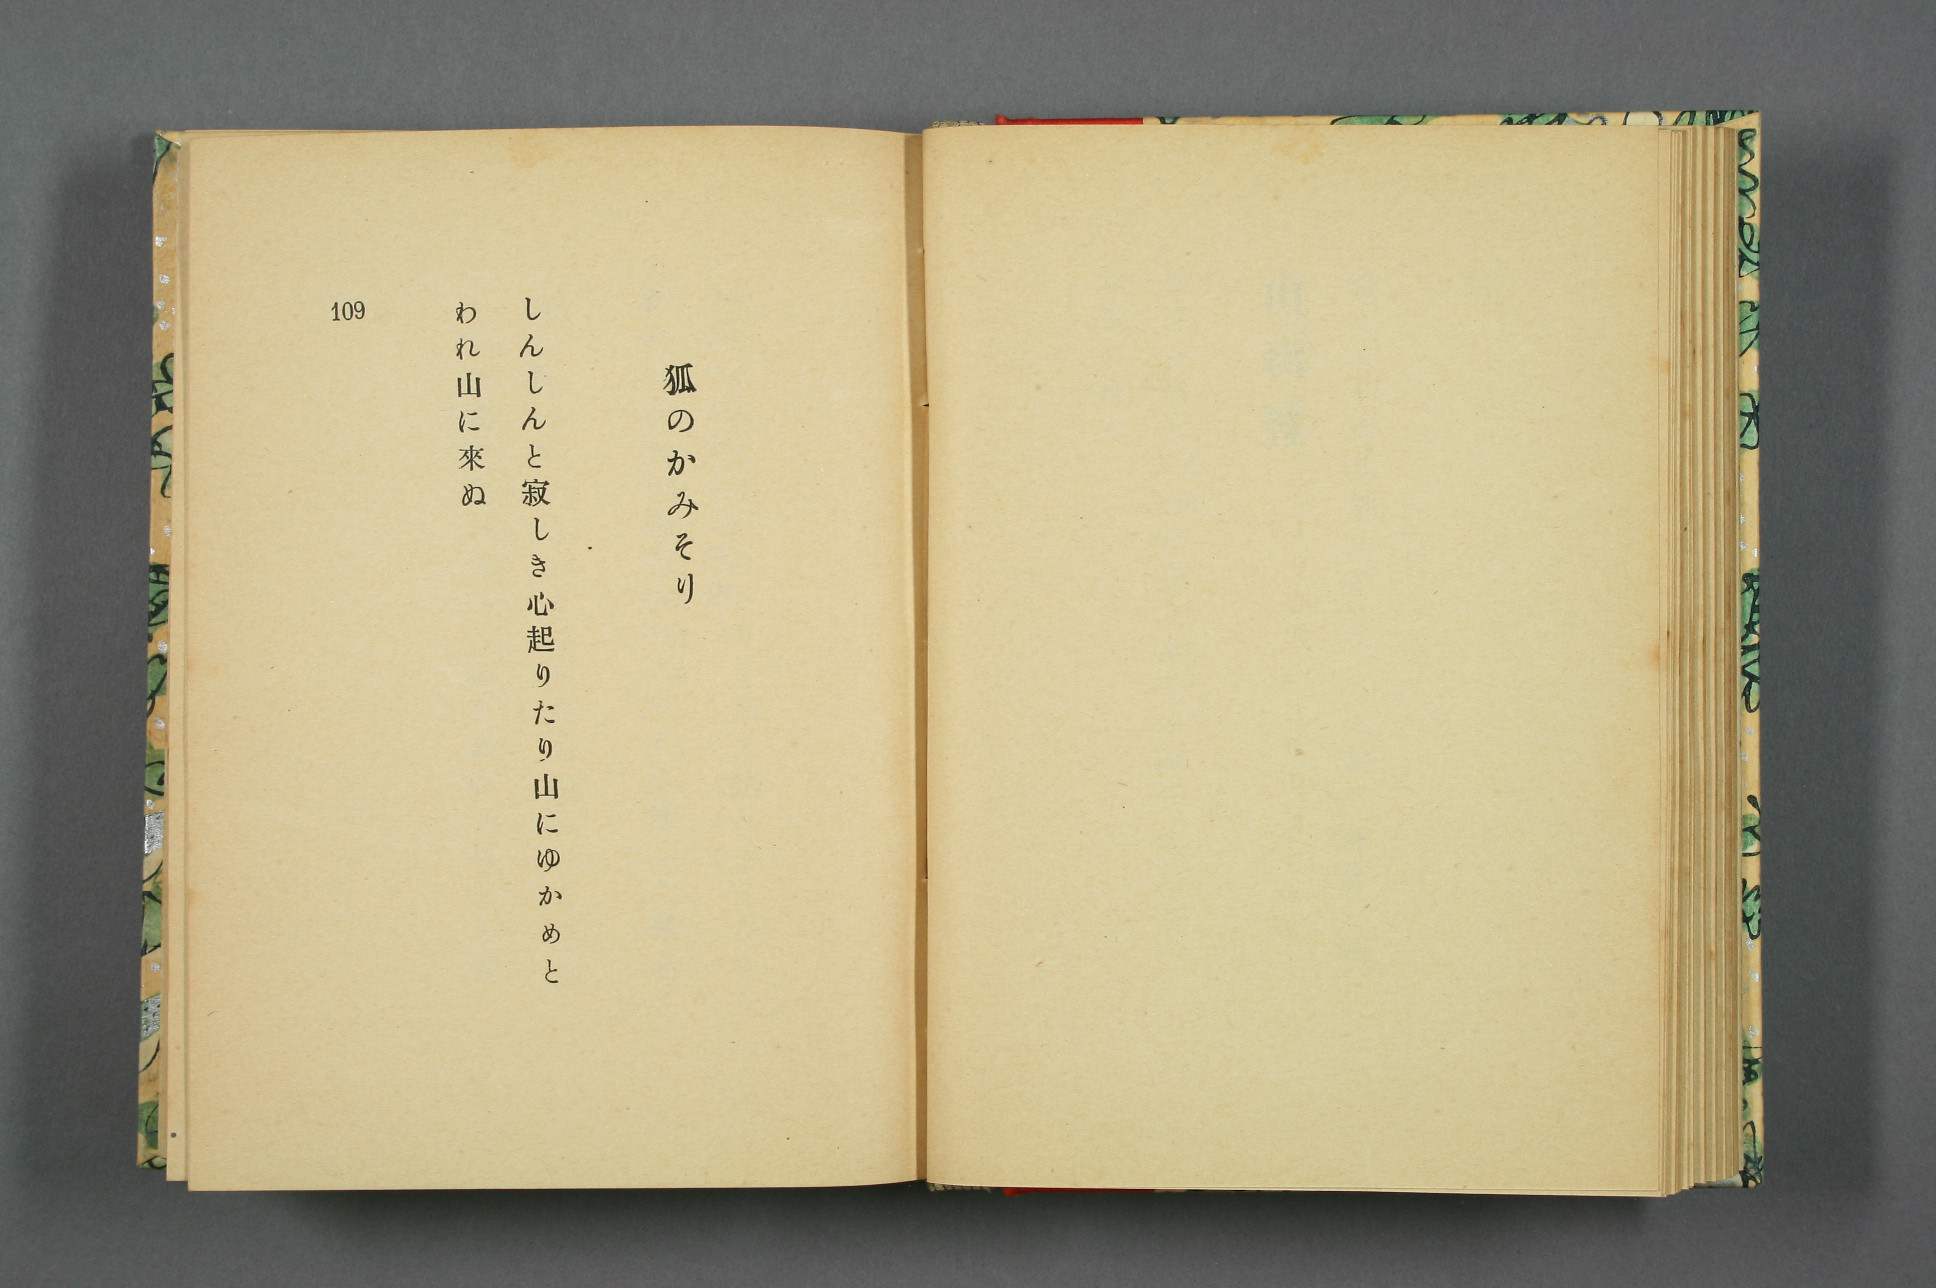 狐のかみそり
しんしんと寂しき心起りたり山にゆかめと
われ山に來ぬ
109